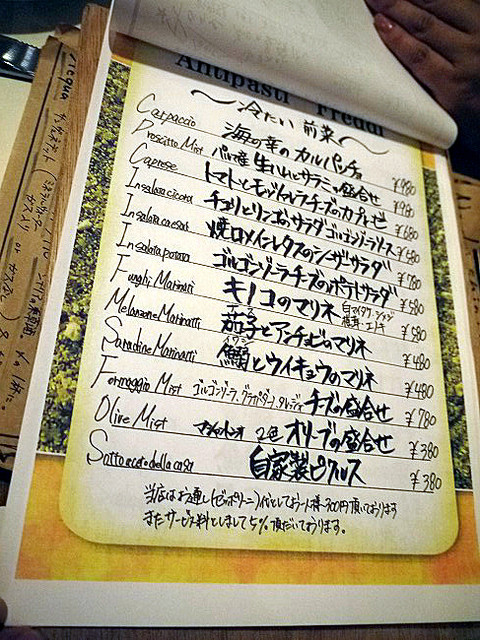 Antipasti Freddi
〜冷たい 前菜〜
Carpaccio 海の幸のカルパッチョ ¥980
Proscitto Mist パルマ産 生ハムとサラミの盛合せ ¥980
Caprese トマトとモッツァレラチーズのカプレーゼ ¥680
Insalata cicoria チコリとリンゴのサラダ ゴルゴンゾーラソース ¥680
Insalata caesar 焼ロメインレタスのシーザーサラダ ¥780
Insalata potata ゴルゴンゾーラチーズのポテトサラダ ¥580
Funghi Marinati キノコのマリネ 白マイタケ・シメジ 椎茸・エノキ ¥580
Melanzane Marinatti 茄子とアンチョビのマリネ ¥480
Saradine Marinatti 鰯とウイキョウのマリネ ¥480
Formaggio Mist ゴルゴンゾーラ、グラナパダーノ、タレッジョ チーズの盛合せ ¥780
Olive Mist 2色オリーブの盛合せ ¥380
Sottoaceto della casa 自家製ピクルス ¥380
当店はお通し(ゼッポリーニ)代としてお一人様300円頂いております
またサービス料として5%頂だいております。